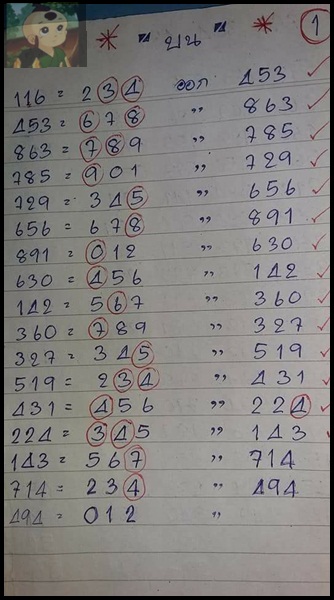 * " บน " * 1
116 = 234 ออก 453 ✓
453 = 678 " 863 ✓
863 = 789 " 785 ✓
785 = 901 " 729 ✓
729 = 345 " 656 ✓
656 = 678 " 891 ✓
891 = 012 " 630 ✓
630 = 456 " 142 ✓
142 = 567 " 360 ✓
360 = 789 " 327 ✓
327 = 345 " 519 ✓
519 = 234 " 431 ✓
431 = 456 " 224 ✓
224 = 345 " 143 ✓
143 = 567 " 714
714 = 234 " 494
494 = 012 "